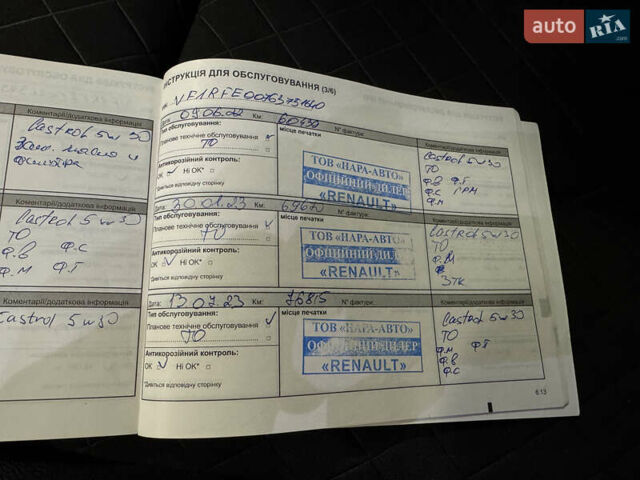 auto RIA.com
Коментарі/додаткова інформація
Castrol 5w30
Зам. масло и
фильтра
Коментарі/додаткова інформація
Castrol 5w30
ТО
Ф.В Ф.С
Ф.М Ф.Т
Коментарі/додаткова інформація
Castrol 5w30
ІНСТРУКЦІЯ ДЛЯ ОБСЛУГОВУВАННЯ (3/6)
Дата: Км: 60430 N° фактури:
Тип обслуговування:
Планове технічне обслуговування
ТО
Антикорозійний контроль:
OK Ні OK*
*Дивіться відповідну сторінку
місце печатки
ТОВ «НАРА-АВТО»
ОФІЦІЙНИЙ ДИЛЕР
«RENAULT»
Коментарі/додаткова інформація
Castrol 5w30
ТО
Ф.В Ф.Т
Ф.С ГРМ
Ф.М
Дата: 30.01.23 Км: N° фактури:
Тип обслуговування:
Планове технічне обслуговування
ТО
Антикорозійний контроль:
OK Ні OK*
*Дивіться відповідну сторінку
місце печатки
ТОВ «НАРА-АВТО»
ОФІЦІЙНИЙ ДИЛЕР
«RENAULT»
Коментарі/додаткова інформація
Castrol 5w30
ТО
Ф.М
Ф.В
ЗТК
Дата: 13.07.23 Км: 76815 N° фактури:
Тип обслуговування:
Планове технічне обслуговування
ТО
Антикорозійний контроль:
OK Ні OK*
*Дивіться відповідну сторінку
місце печатки
ТОВ «НАРА-АВТО»
ОФІЦІЙНИЙ ДИЛЕР
«RENAULT»
Коментарі/додаткова інформація
Castrol 5w30
ТО
Ф.М Ф.Т
Ф.В
Ф.С
6.13